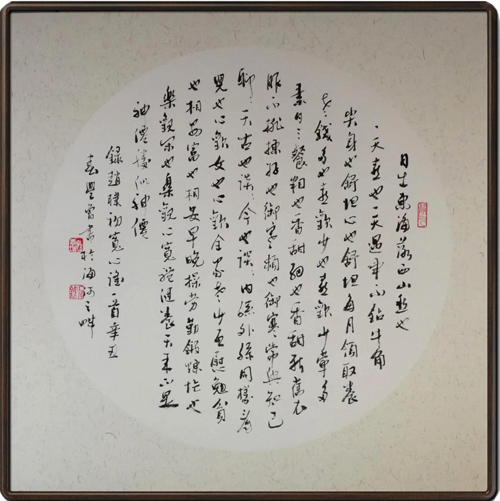 日出東海落西山愁也
一天喜也一天遇事不鑽牛角
尖身也舒坦心也舒坦每月領取養
老錢多也喜歡少也喜歡少葷多
素日三餐粗也香甜細也香甜新舊衣
服不挑揀好也御寒賴也御寒常與知己
聊天古也談今也談内孫外孫同樣看
兒也心歡女也心歡全家老少互慰勉貧
也相安富也相安早晚操勞勤鍛煉忙也
樂觀閑也樂觀心寬體健養天年不是
神仙勝似神仙
録趙樸初寬心謠一首辛丑
春 書於海河之畔